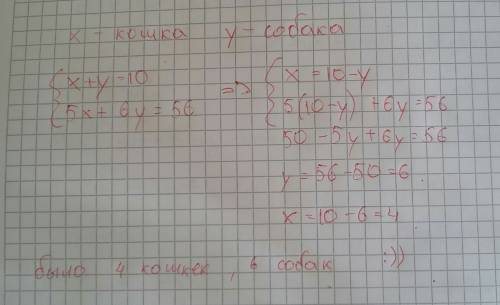 x - кошка y - собака
{ x + y = 10
{ 5x + 6y = 56
=> { x = 10 - y
{ 5(10 - y) + 6y = 56
50 - 5y + 6y = 56
y = 56 - 50 = 6
x = 10 - 6 = 4
было 4 кошек, 6 собак :))